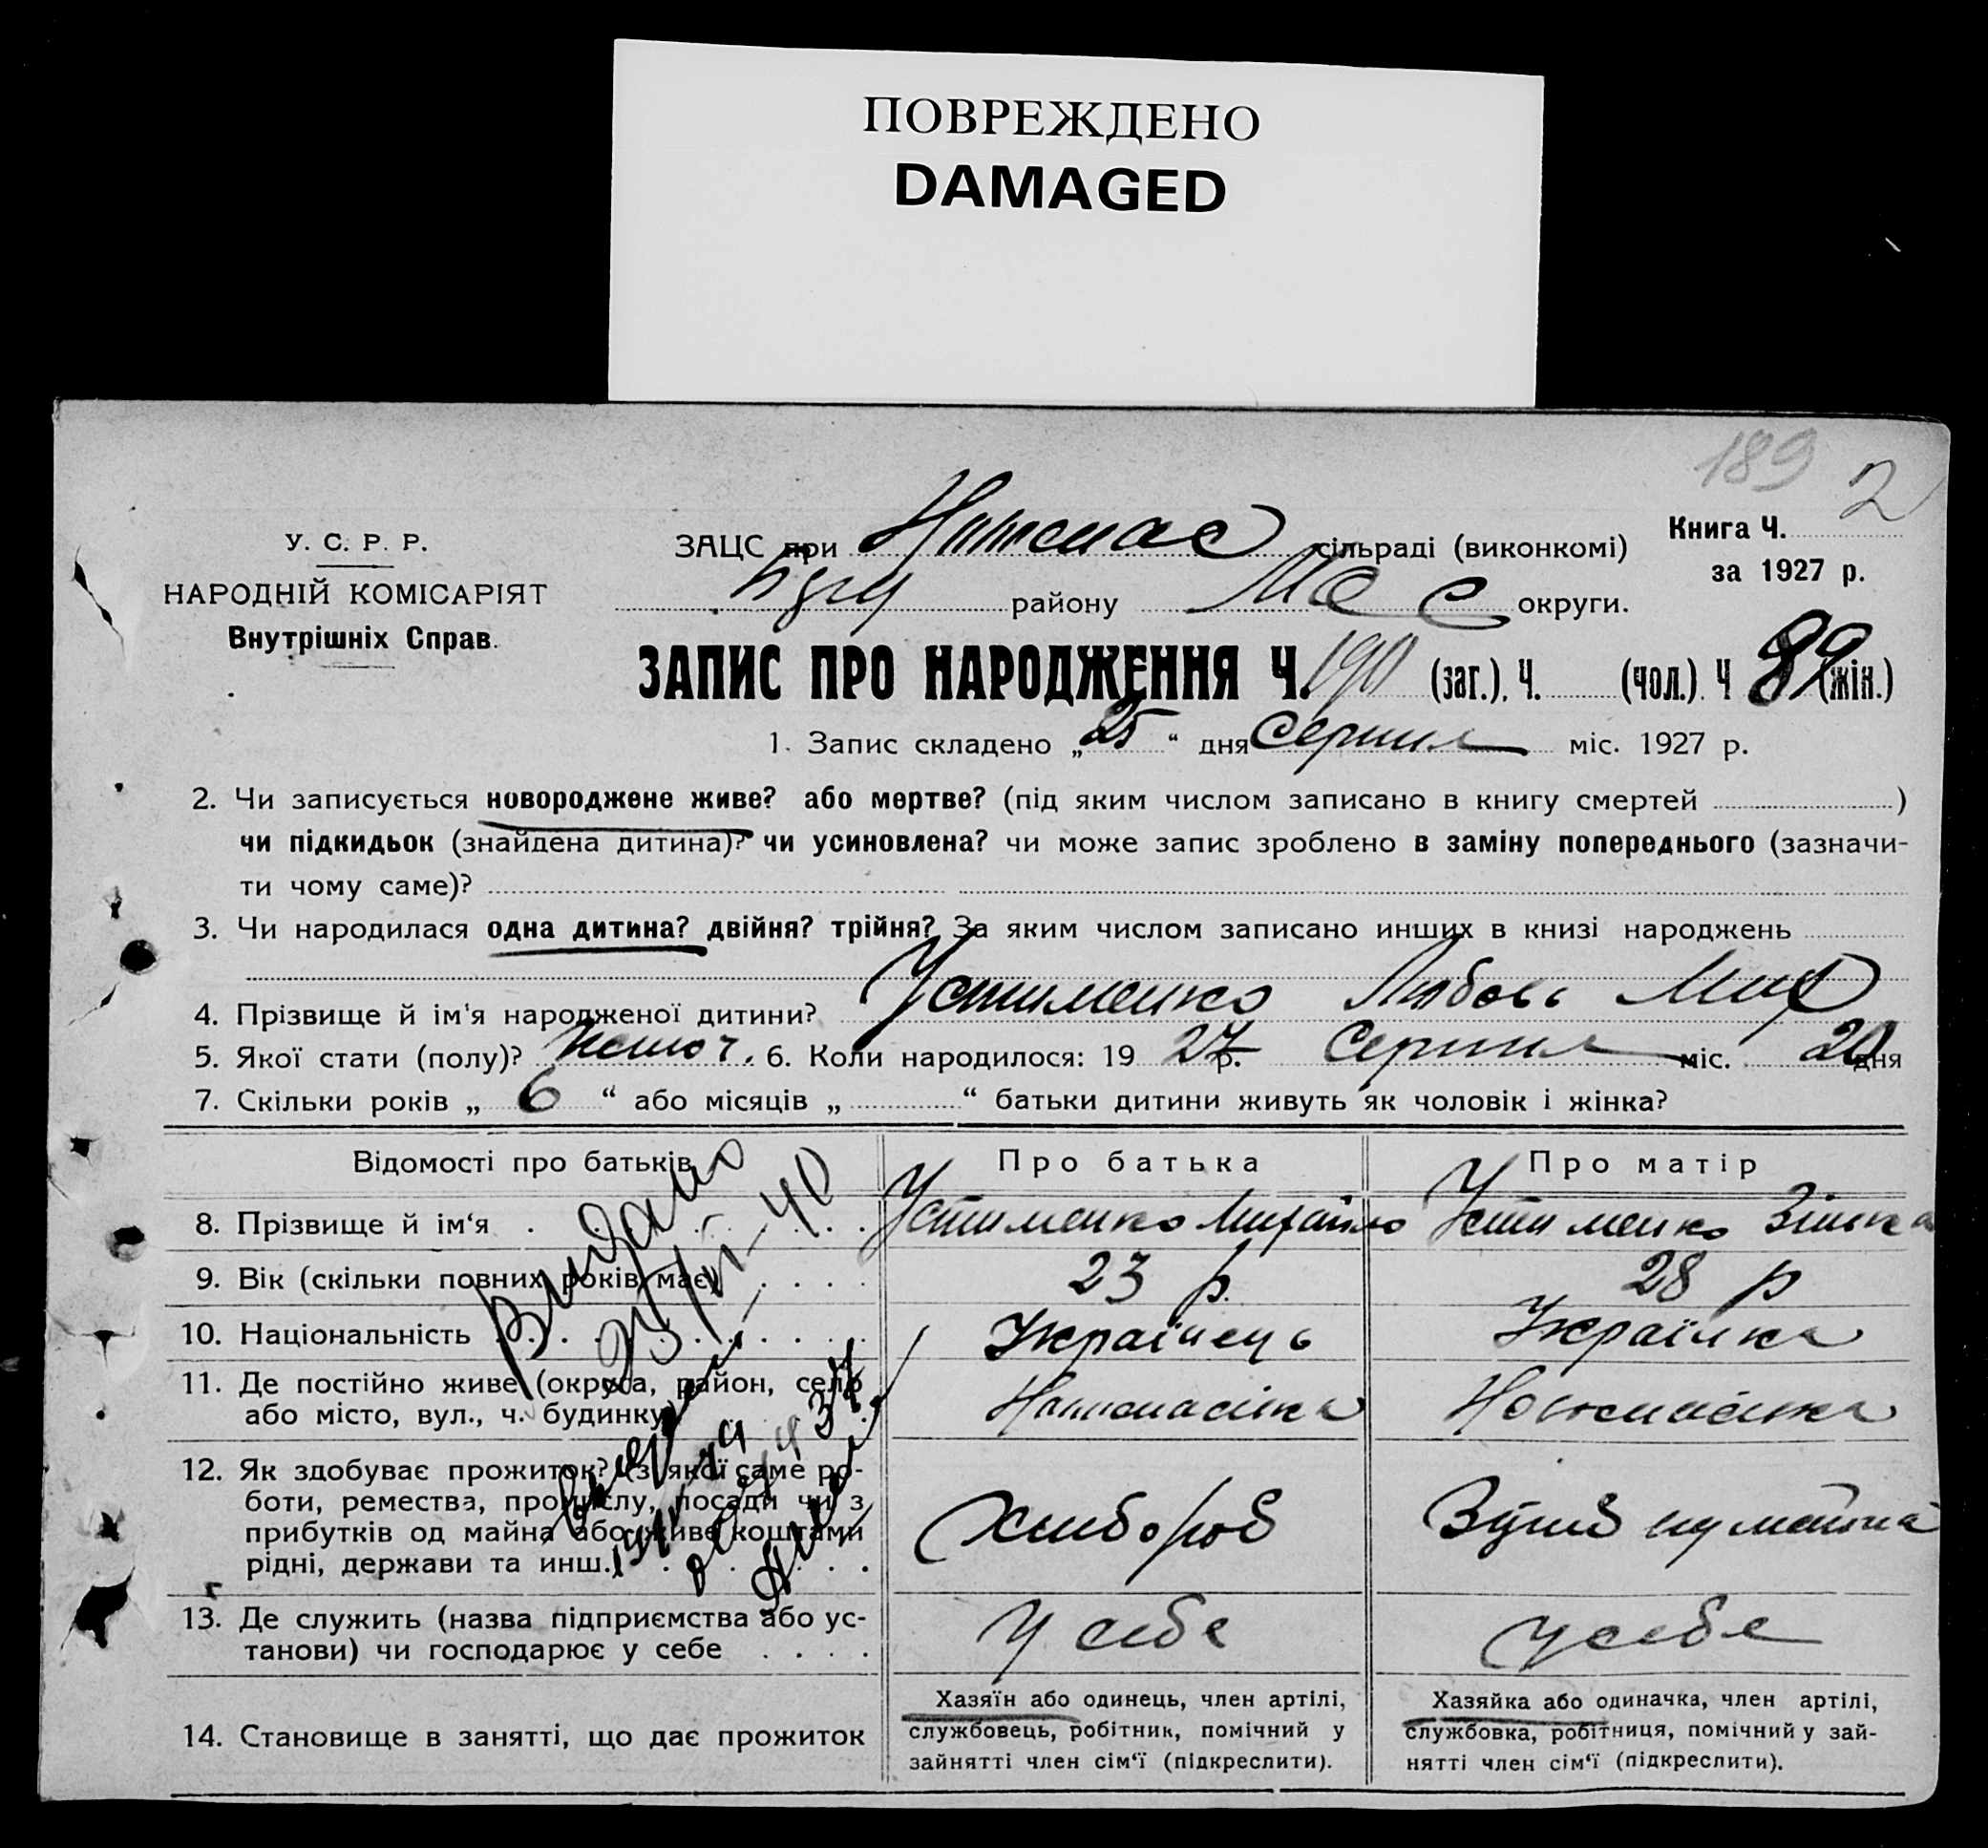 ПОВРЕЖДЕНО
DAMAGED
189 2
У. С. Р. Р.
НАРОДНІЙ КОМІСАРІЯТ
Внутрішніх Справ.
ЗАЦС при сільраді (виконкомі)
району округи.
Книга Ч.
за 1927 р.
ЗАПИС ПРО НАРОДЖЕННЯ Ч. 190 (заг.). Ч. (чол.). Ч 89 (жін.)
1. Запис складено „ 25 “ дня Серпня міс. 1927 р.
2. Чи записується новороджене живе? або мертве? (під яким числом записано в книгу смертей )
чи підкидьок (знайдена дитина)? чи усиновлена? чи може запис зроблено в заміну попереднього (зазначи-
ти чому саме)?
3. Чи народилася одна дитина? двійня? трійня? За яким числом записано инших в книзі народжень
4. Прізвище й ім'я народженої дитини? Устименко Любовь Мих
5. Якої стати (полу)? Жіноч. 6. Коли народилося: 19 27 р. Серпня міс. 20 дня
7. Скільки років „ 6 “ або місяців „ “ батьки дитини живуть як чоловік і жінка?
Відомості про батьків Про батька Про матір
8. Прізвище й ім‘я Устименко Михайло Устименко Зінька
9. Вік (скільки повних років має) 23 р. 28 р
10. Національність Українець Українка
11. Де постійно живе (округа, район, село
або місто, вул., ч. будинку)
12. Як здобуває прожиток? (з якої саме ро-
боти, ремества, промислу, посади чи з
прибутків од майна або живе коштами
рідні, держави та инш.) Хлібороб
13. Де служить (назва підприємства або ус-
танови) чи господарює у себе У себе у себе
14. Становище в занятті, що дає прожиток
Хазяїн або одинець, член артілі,
службовець, робітник, помічний у
зайнятті член сім‘ї (підкреслити).
Хазяйка або одиначка, член артілі,
службовка, робітниця, помічний у зай-
нятті член сім‘ї (підкреслити).
Видано